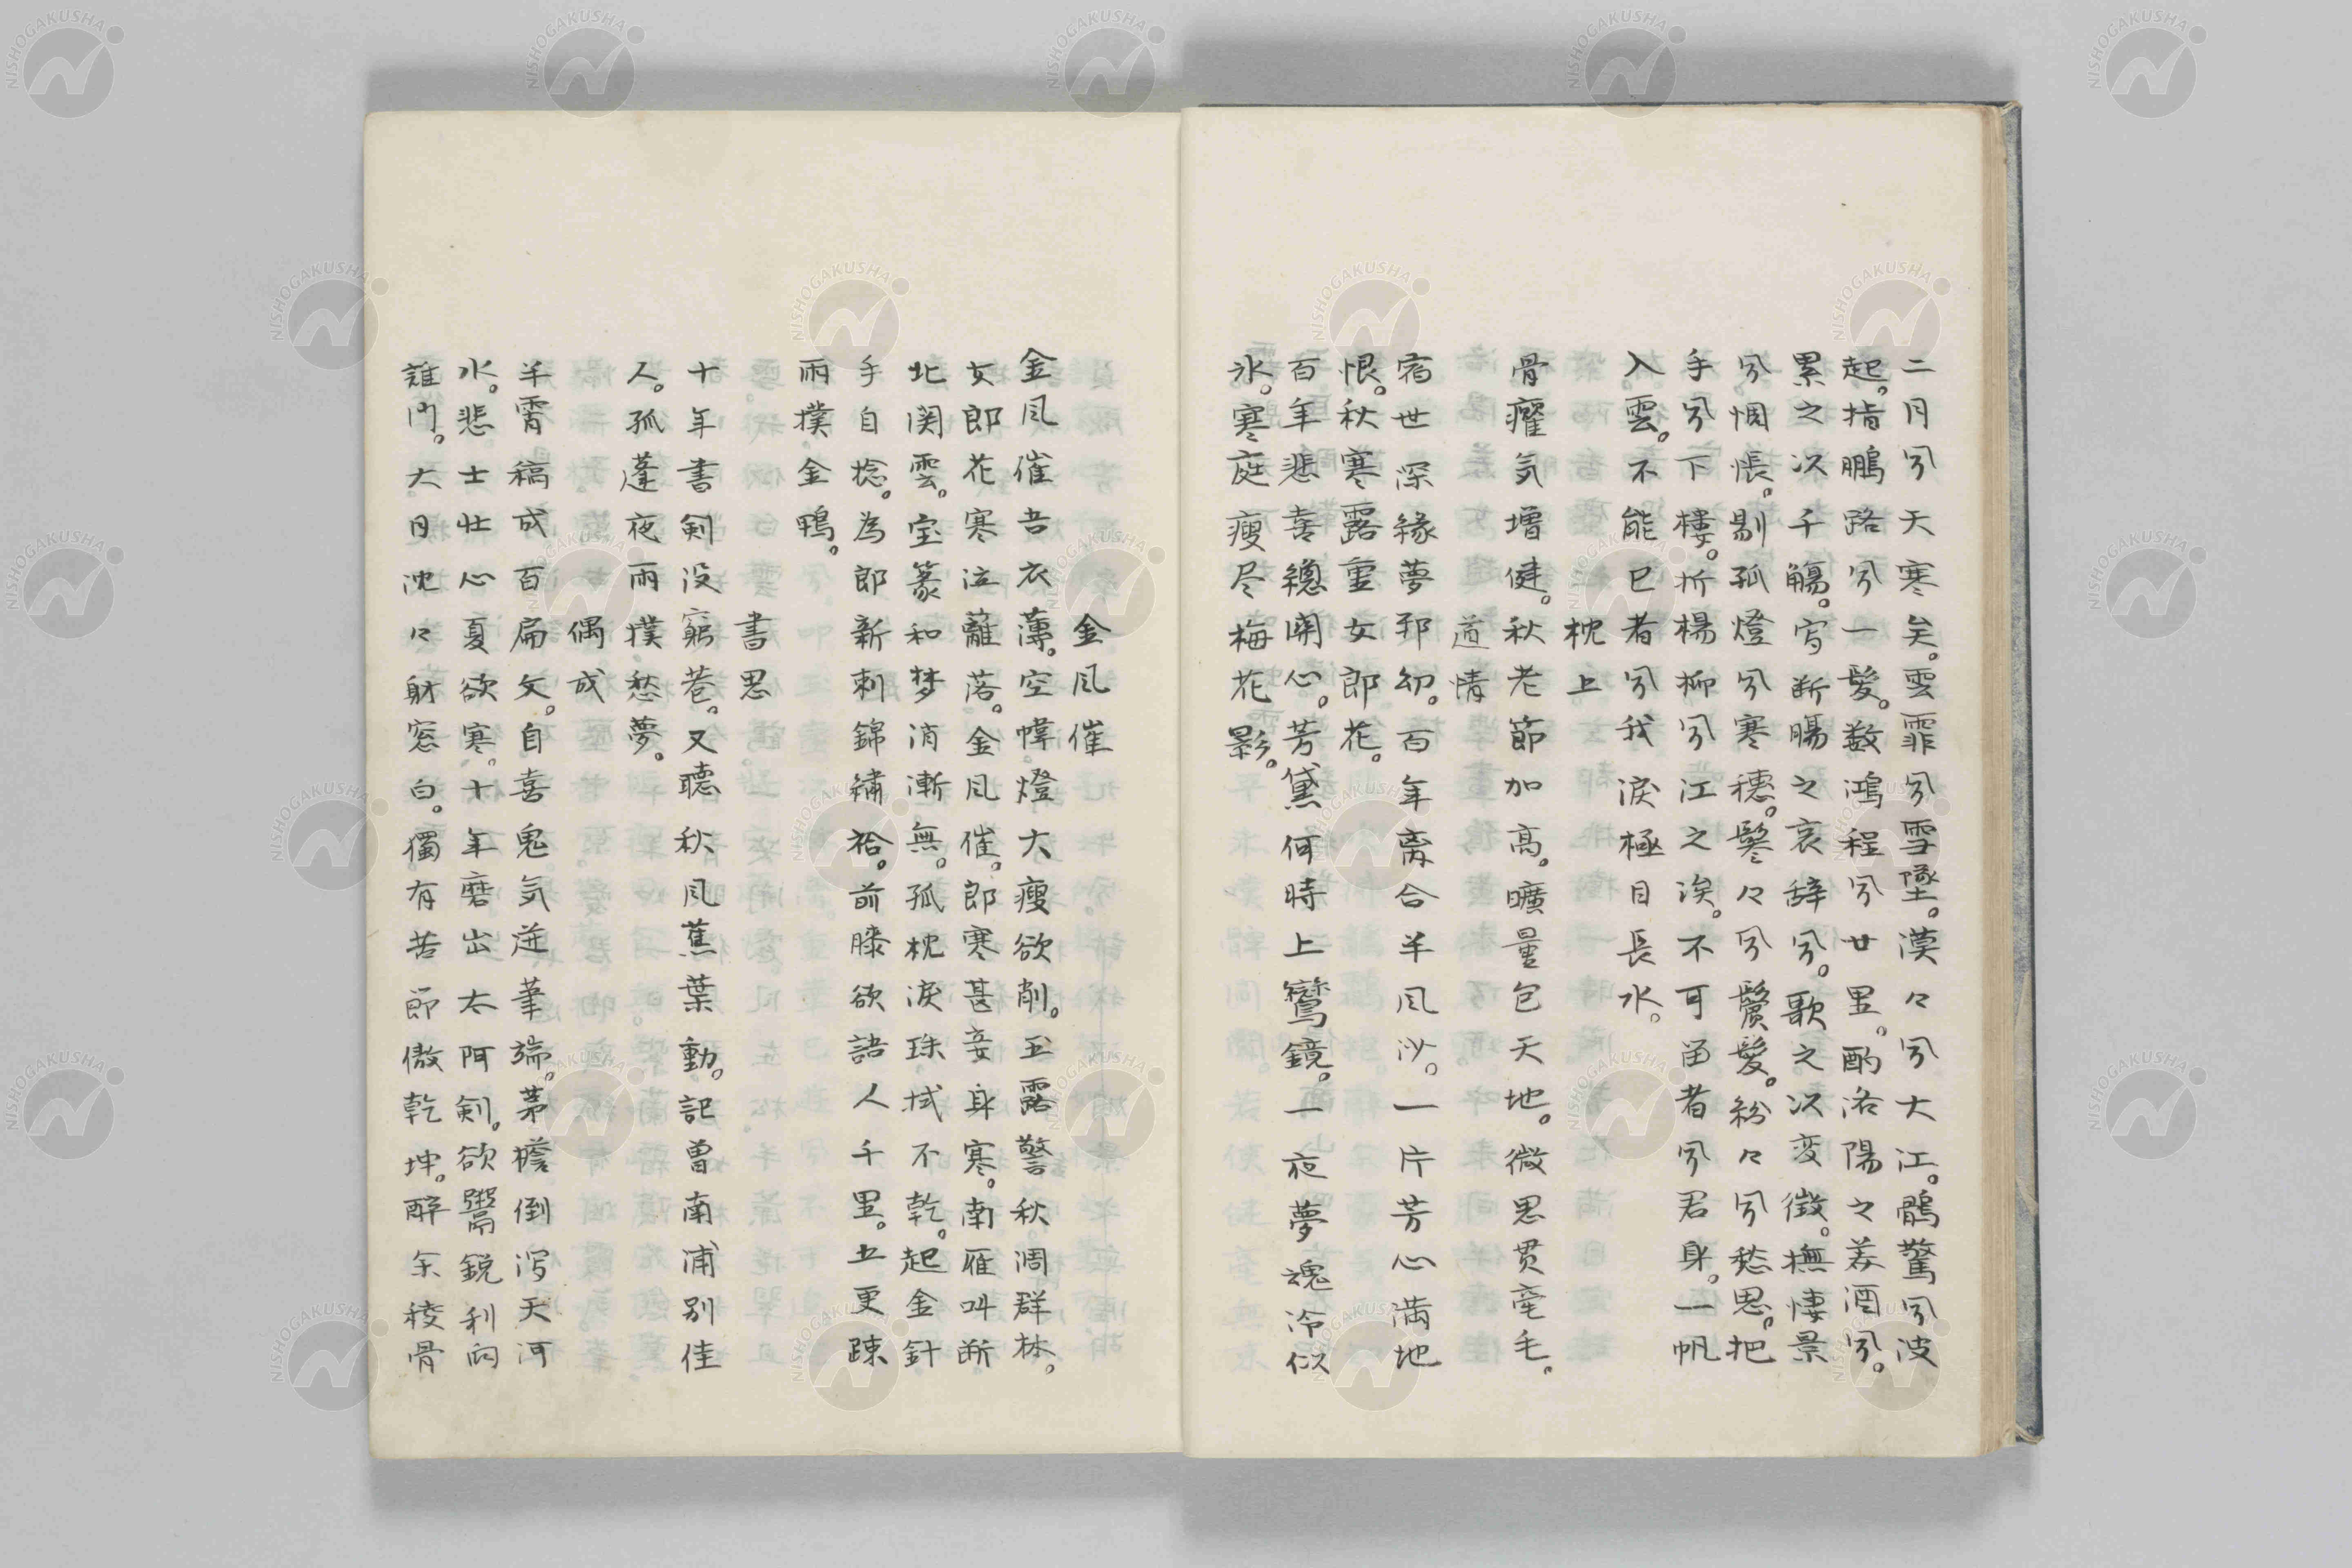 二月兮天寒矣。雲霏兮雪墜。漠々兮大江。鶻驚兮波
起。指鵬路兮一髮。数鴻程兮廿里。酌洛陽之美酒兮。
累之次千觴。寄断腸之哀辞兮。歌之次変徴。撫悽景
兮惆悵。剔孤燈兮寒穗。鬖々兮鬢髮。紛々兮愁思。把
手兮下樓。折楊柳兮江之涘。不可留者兮君身。一帆
入雲。不能已者兮我淚極目長水。
枕上
骨癯気増健。秋老節加高。曠量包天地。微思貫毫毛。
道情
宿世深緣夢邪幻。百年离合半风沙。一片芳心満地
恨。秋寒露重女郎花。
百年悲喜總関心。芳黛何時上鸞鏡。一夜夢魂冷似
氷。寒庭瘦尽梅花影。
金风催
金风催吾衣薄。空幃燈大瘦欲削。玉露警秋凋群林。
女郎花寒泣蘺落。金风催。郎寒甚妾身寒。南雁叫断
北関雲。宝篆和梦消漸無。孤枕淚珠拭不乾。起金針
手自捻。為郎新刺錦繡袷。前膝欲語人千里。五更疎
雨撲金鴨。
書思
十年書剣没窮巷。又聴秋风蕉葉動。記曽南浦別佳
人。孤蓬夜雨撲愁夢。
偶成
半霄稿成百扁文。自喜鬼気迸筆端。茅檐倒瀉天河
水。悲士壮心夏欲寒。十年磨出太阿剣。欲鬻鋭利向
誰門。大月沈々射窓白。獨有苦節傲乾坤。醉余稜骨
NISHOGAKUSHA